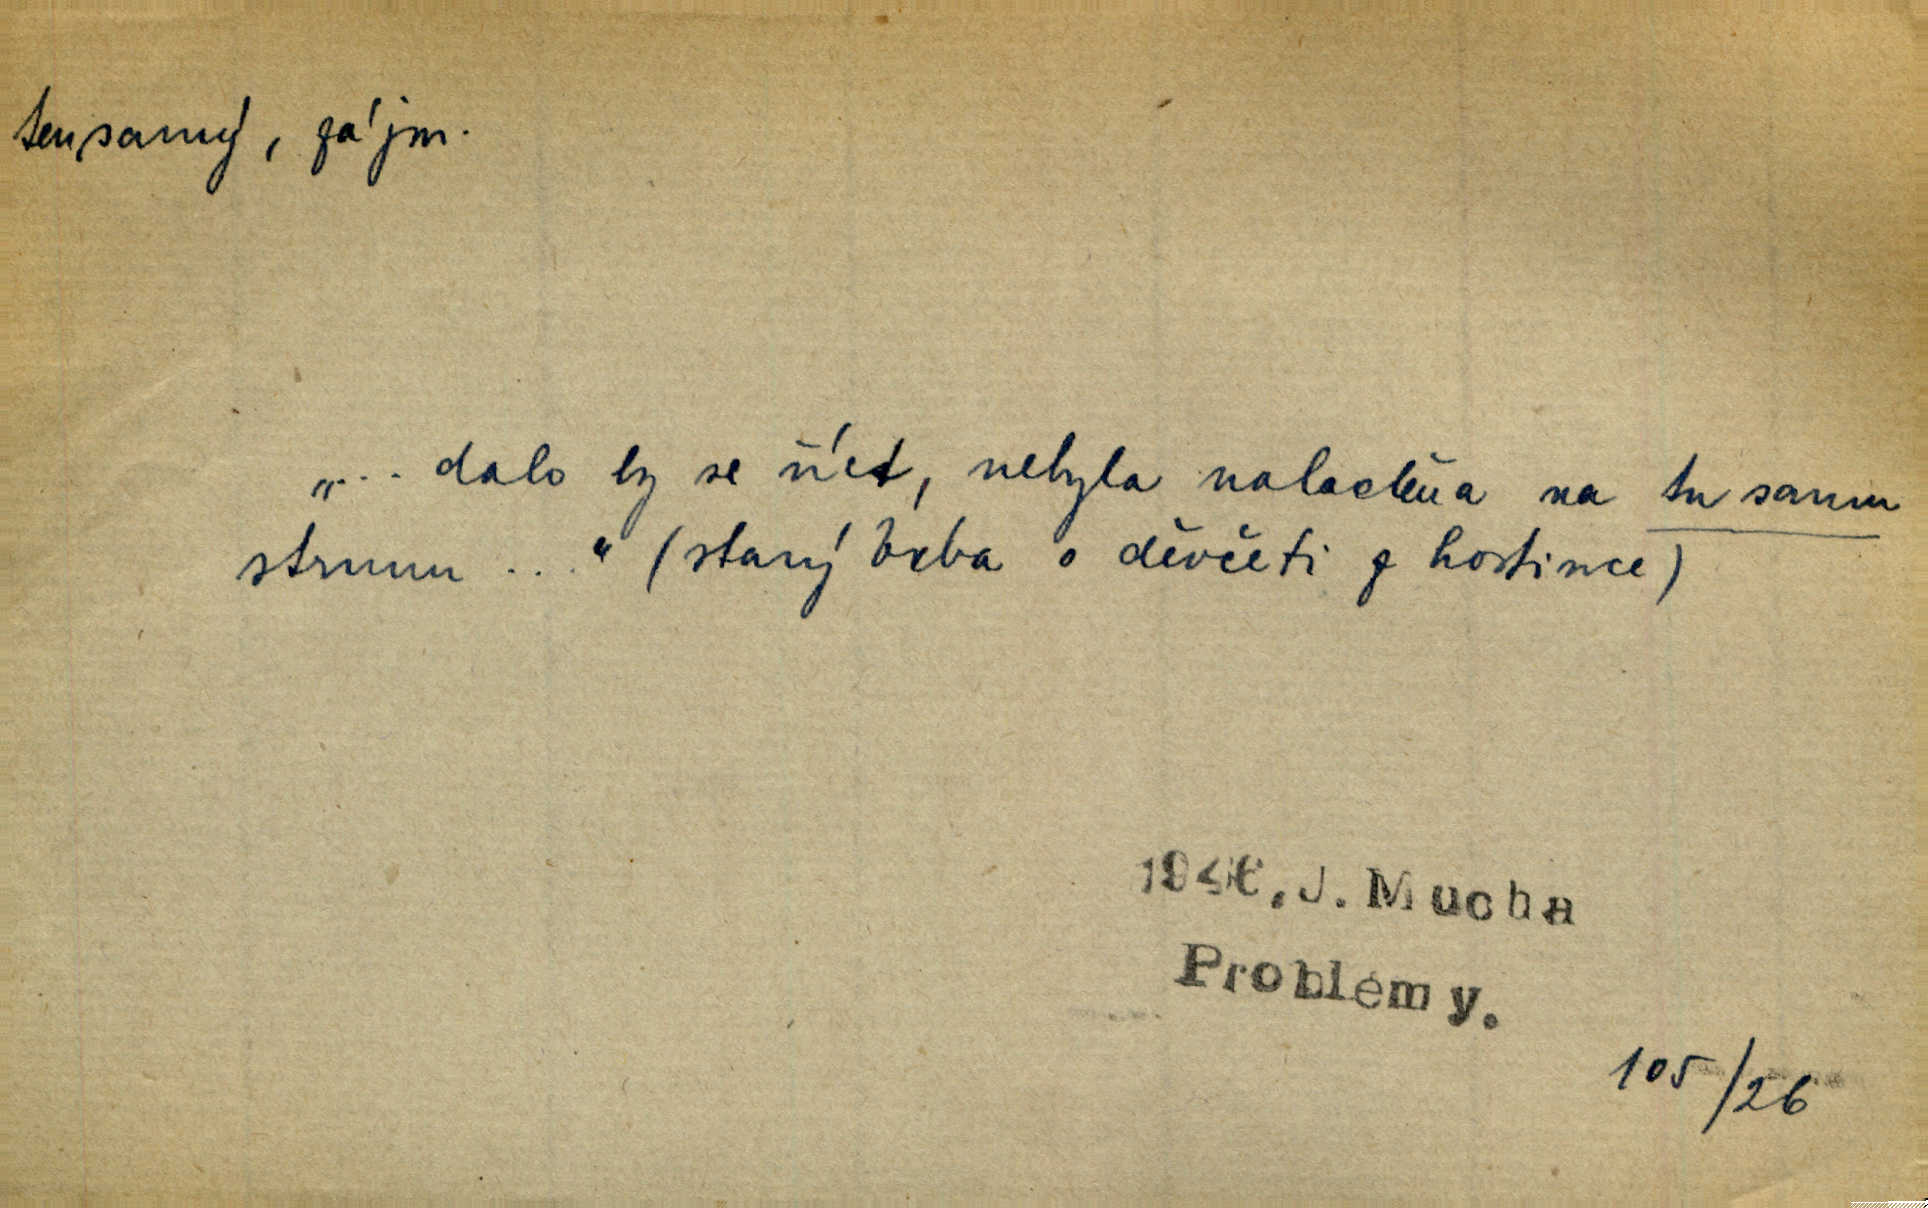 tensamý, zájm.
„... dalo by se říct, nebyla naladěna na tu samu
strunu ..." (starý Vrba o děvčeti z hostince)
1946, J. Mucha
Problémy.
105/26